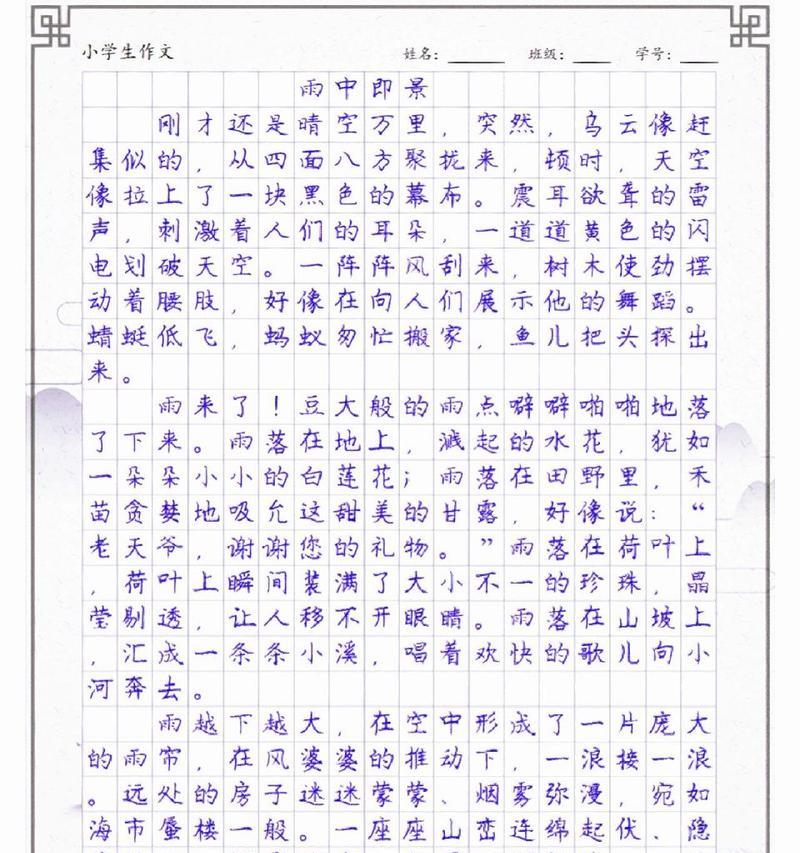 小学生作文 姓名: 班级: 学号:
雨中即景
刚才还是晴空万里，突然，乌云像赶
集似的，从四面八方聚拢来，顿时，天空
像拉上了一块黑色的幕布。震耳欲聋的雷
声，刺激着人们的耳朵，一道道黄色的闪
电划破天空。一阵阵风刮来，树木使劲摆
动着腰肢，好像在向人们展示他的舞蹈。
蜻蜓低飞，蚂蚁匆忙搬家，鱼儿把头探出
来。
雨来了！豆大般的雨点噼噼啪啪地落
了下来。雨落在地上，溅起的水花，犹如
一朵朵小小的白莲花；雨落在田野里，禾
苗贪婪地吸允这甜美的甘露，好像说：“
老天爷，谢谢您的礼物。”雨落在荷叶上
，荷叶上瞬间装满了大小不一的珍珠，晶
莹剔透，让人移不开眼睛。雨落在山坡上
，汇成一条条小溪，唱着欢快的歌儿向小
河奔去。
雨越下越大，在空中形成了一片庞大
的雨帘，在风婆婆的推动下，一浪接一浪
。远处的房子迷迷蒙蒙、烟雾弥漫，宛如
海市蜃楼一般。一座座山峦连绵起伏、隐